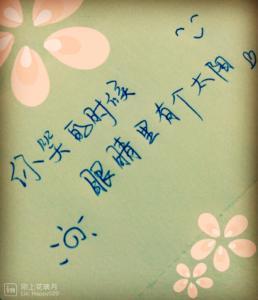 你笑的时候
眼睛里有个太阳
in 陌上花璃月
Lin: Happy520